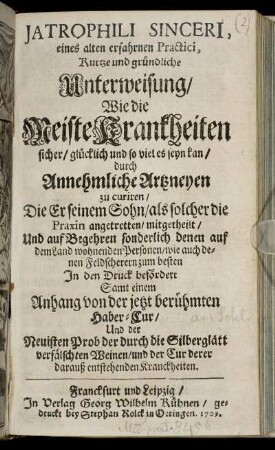 (2)
JATROPHILI SINCERI,
eines alten erfahrnen Practici,
Kurtze und gründliche
Unterweisung/
Wie die
Meiste Kranckheiten
sicher/ glücklich und so viel es seyn kan/
durch
Annehmliche Artzneyen
zu curiren/
Die Er seinem Sohn/ als solcher die
Praxin angetretten/ mitgetheilt/
Und auf Begehren sonderlich denen auf
dem Land wohnenden Personen/ wie auch de-
nen Feldscherern zum besten
In den Druck befördert
Samt einem
Anhang von der jetzt berühmten
Haber-Cur/
Und der
Neuisten Prob der durch die Silberglätt
verfälschten Weinen/ und der Cur derer
darauß entstehenden Kranckheiten.
Franckfurt und Leipzig/
In Verlag Georg Wilhelm Kühnen/ ge-
druckt bey Stephan Rolck in Oetingen. 1709.